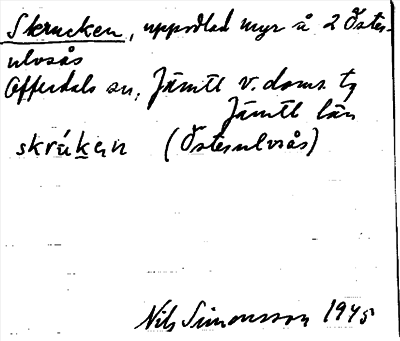 Skrucken, uppodlad myr å 2 Öster-
ulvsås
Offerdals sn, Jämtl v. doms. tg
Jämtl län
skrúken (Östeṛulvsås)
Nils Simonsson 1945